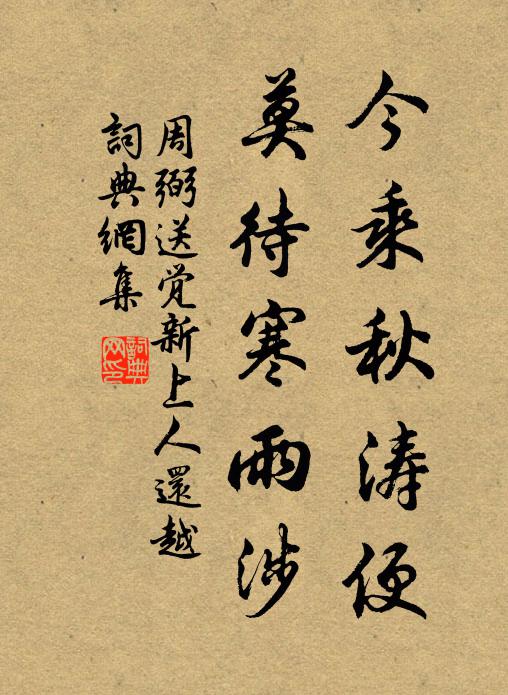 今乘秋涛便
莫待寒雨涉
周弼送觉新上人還越
詞典網集
詞典網印